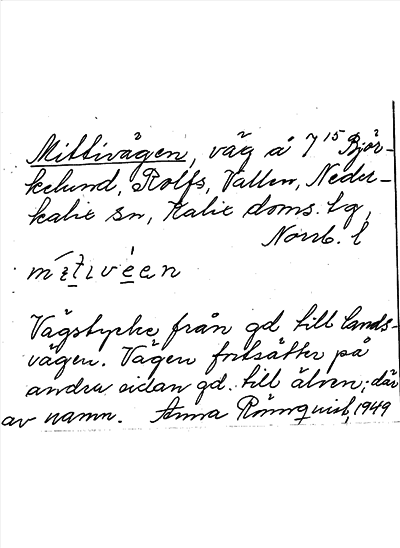 Mittivägen, väg å 7¹⁵ Björ-
kelund, Rolfs, Vallen, Neder-
kalix sn, Kalix doms. tg,
Norrb. l
Vägstycke från gd till lands-
vägen. Vägen fortsätter på
andra sidan gd. till älven; där
av namn. Anna Rönnquist, 1949